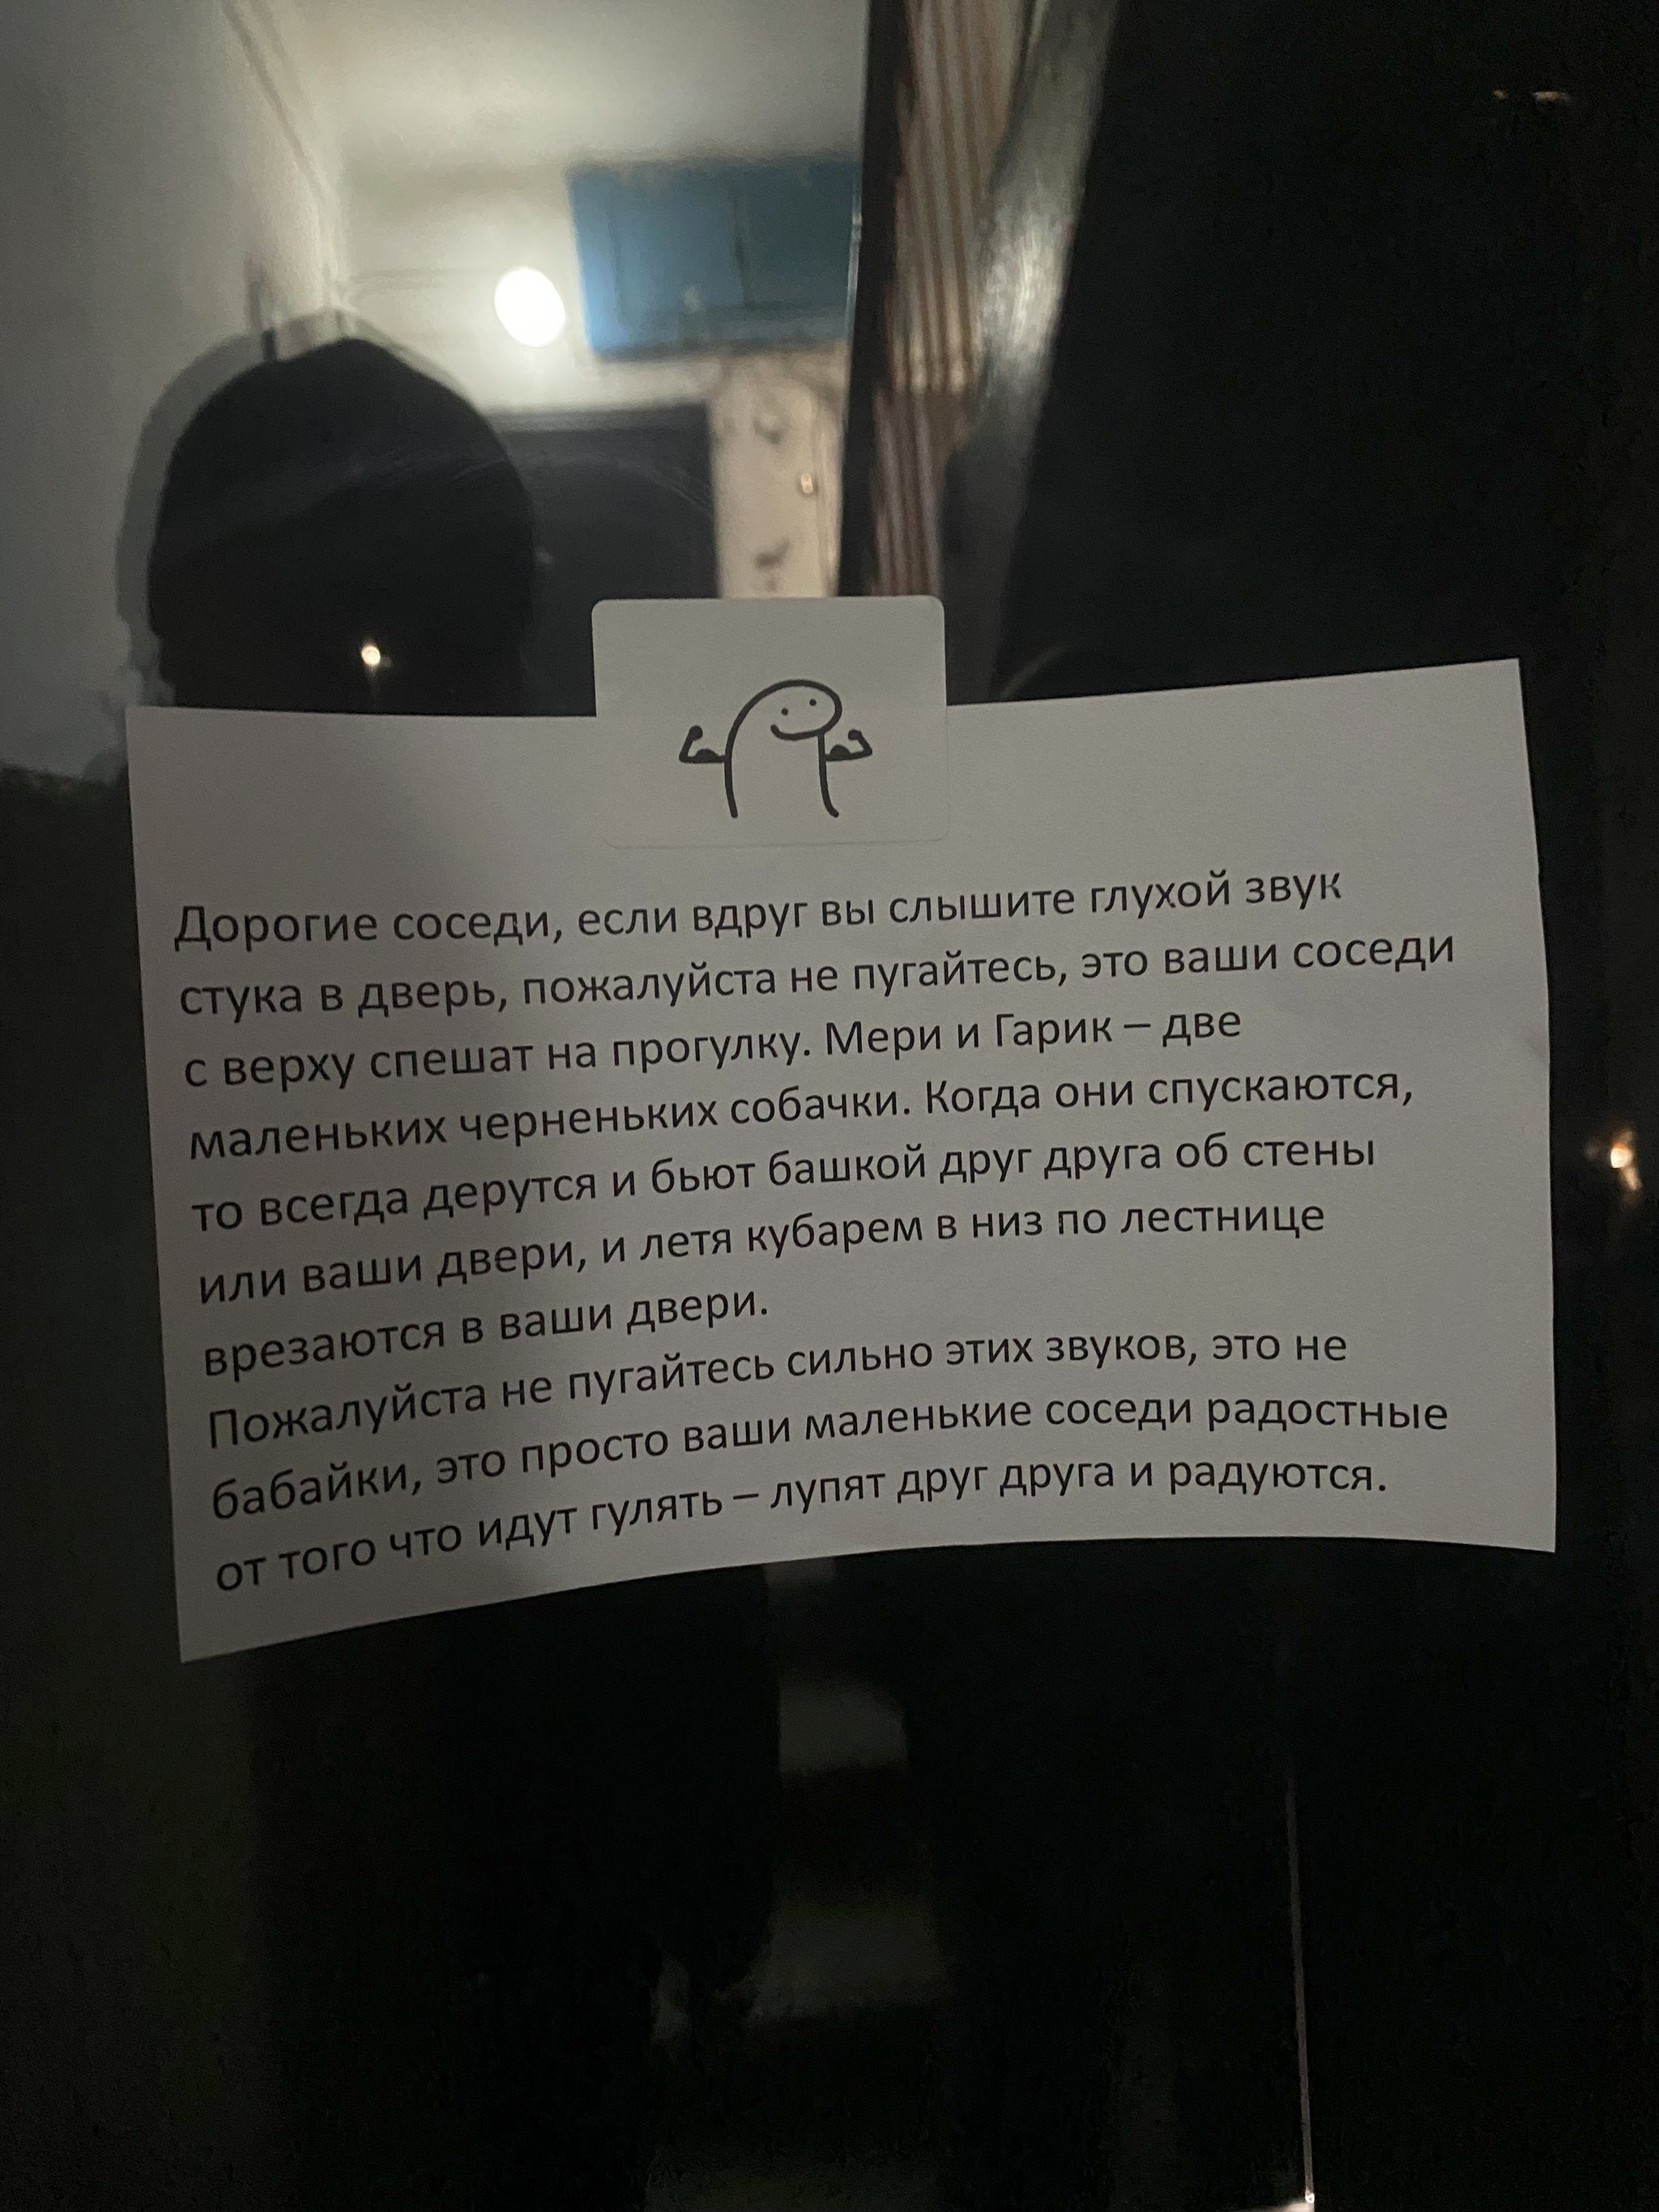 Дорогие соседи, если вдруг вы слышите глухой звук
стука в дверь, пожалуйста не пугайтесь, это ваши соседи
с верху спешат на прогулку. Мери и Гарик – две
маленьких черненьких собачки. Когда они спускаются,
то всегда дерутся и бьют башкой друг друга об стены
или ваши двери, и летя кубарем в низ по лестнице
врезаются в ваши двери.
Пожалуйста не пугайтесь сильно этих звуков, это не
бабайки, это просто ваши маленькие соседи радостные
от того что идут гулять – лупят друг друга и радуются.